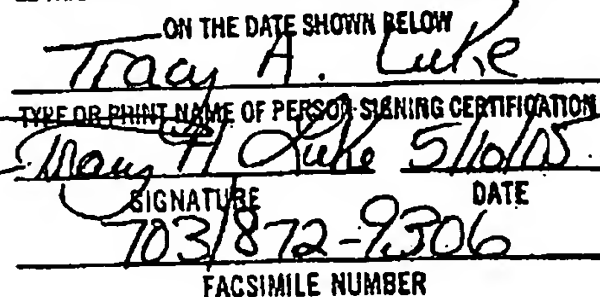 ON THE DATE SHOWN BELOW
Tracy A. Luke
TYPE OR PRINT NAME OF PERSON SIGNING CERTIFICATION
Tracy A Luke 5/10/05
SIGNATURE DATE
703/872-9306
FACSIMILE NUMBER